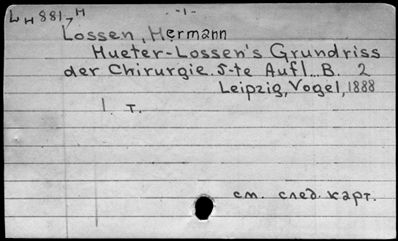 LH881,H -1-
Lossen, Hermann
Hueter-Lossen's Grundriss
der Chirurgie. 5-te Aufl.. B. 2
Leipzig, Vogel, 1888
1 т.
см. след. карт.